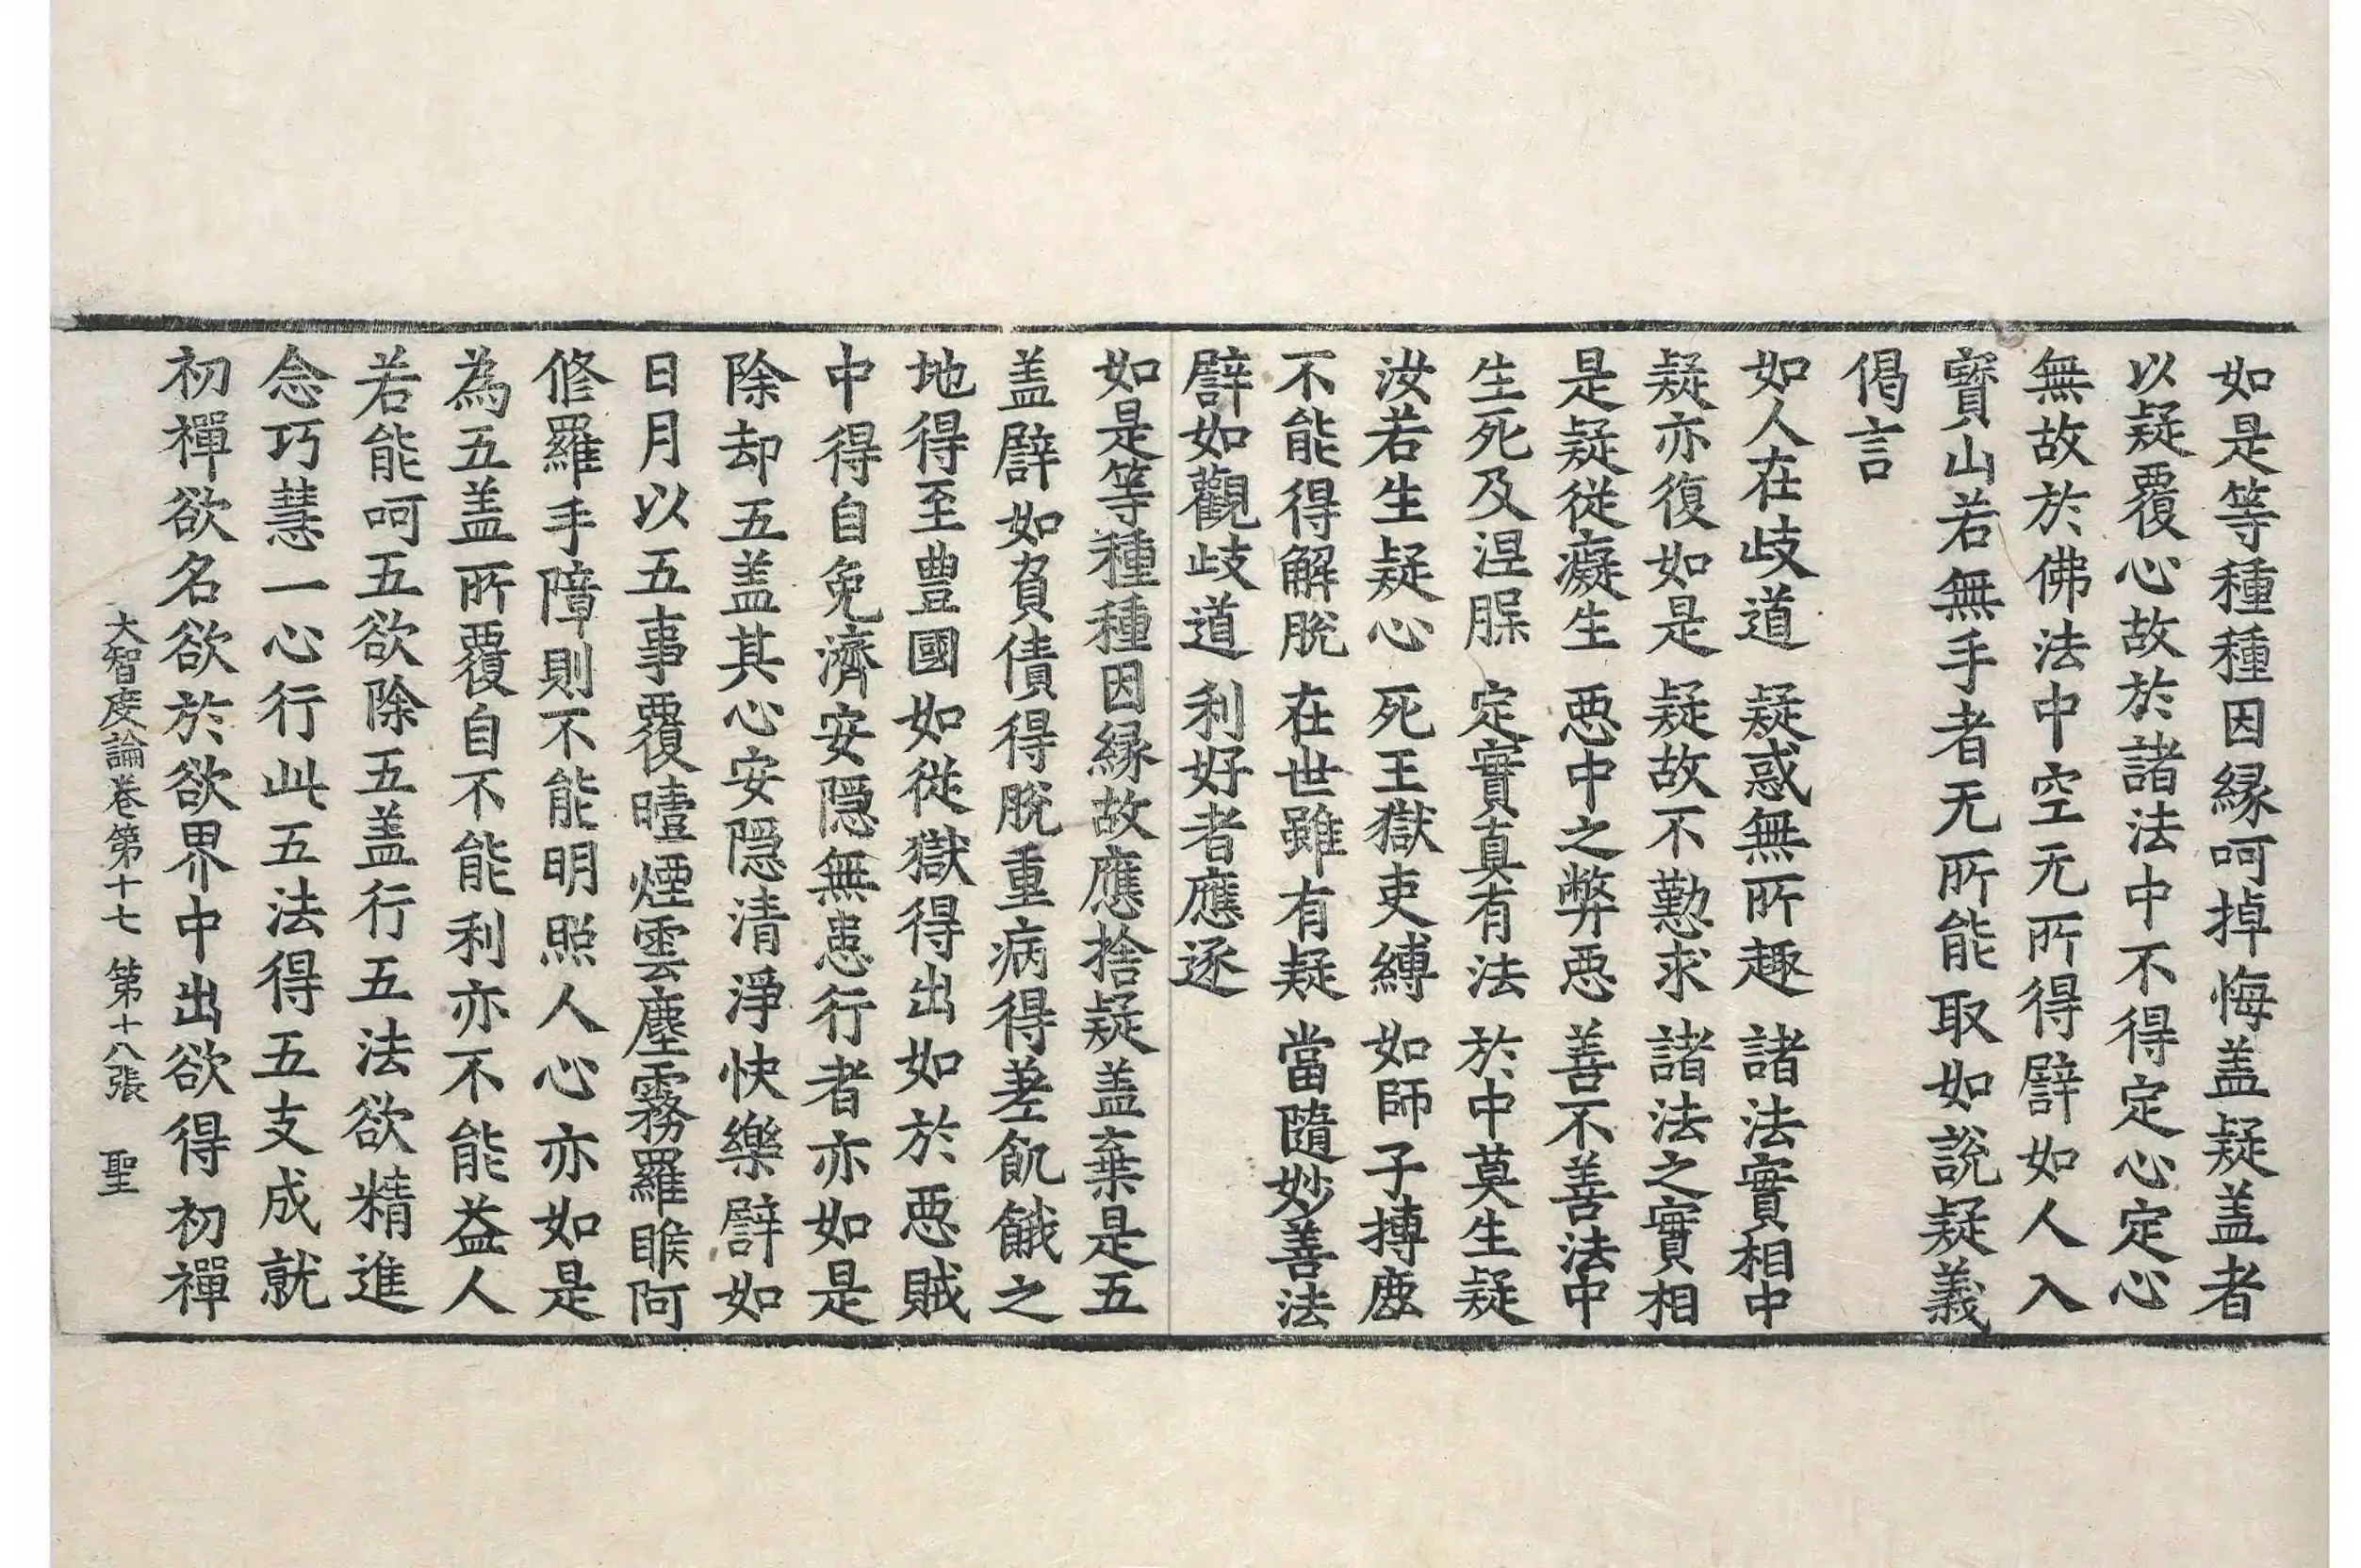 如是等種種因縁呵掉悔盖疑盖者
以疑覆心故於諸法中不得定心定心
無故於佛法中空无所得譬如人入
寶山若無手者无所能取如說疑義
偈言
如人在岐道 疑惑無所趣 諸法實相中
疑亦復如是 疑故不懃求 諸法之實相
是疑從癡生 惡中之弊惡 善不善法中
生死及涅槃 定實真有法 於中莫生疑
汝若生疑心 死王獄吏縛 如師子搏鹿
不能得解脫 在世雖有疑 當隨妙善法
譬如觀岐道 利好者應逐
如是等種種因縁故應捨疑盖棄是五
盖譬如負債得脫重病得差飢餓之
地得至豊國如從獄得出如於惡賊
中得自免濟安隱無患行者亦如是
除却五盖其心安隱清淨快樂譬如
日月以五事覆曀煙雲塵霧羅睺阿
修羅手障則不能明照人心亦如是
為五盖所覆自不能利亦不能益人
若能呵五欲除五盖行五法欲精進
念巧慧一心行此五法得五支成就
初禪欲名欲於欲界中出欲得初禪
大智度論卷第十七 第十八張 聖